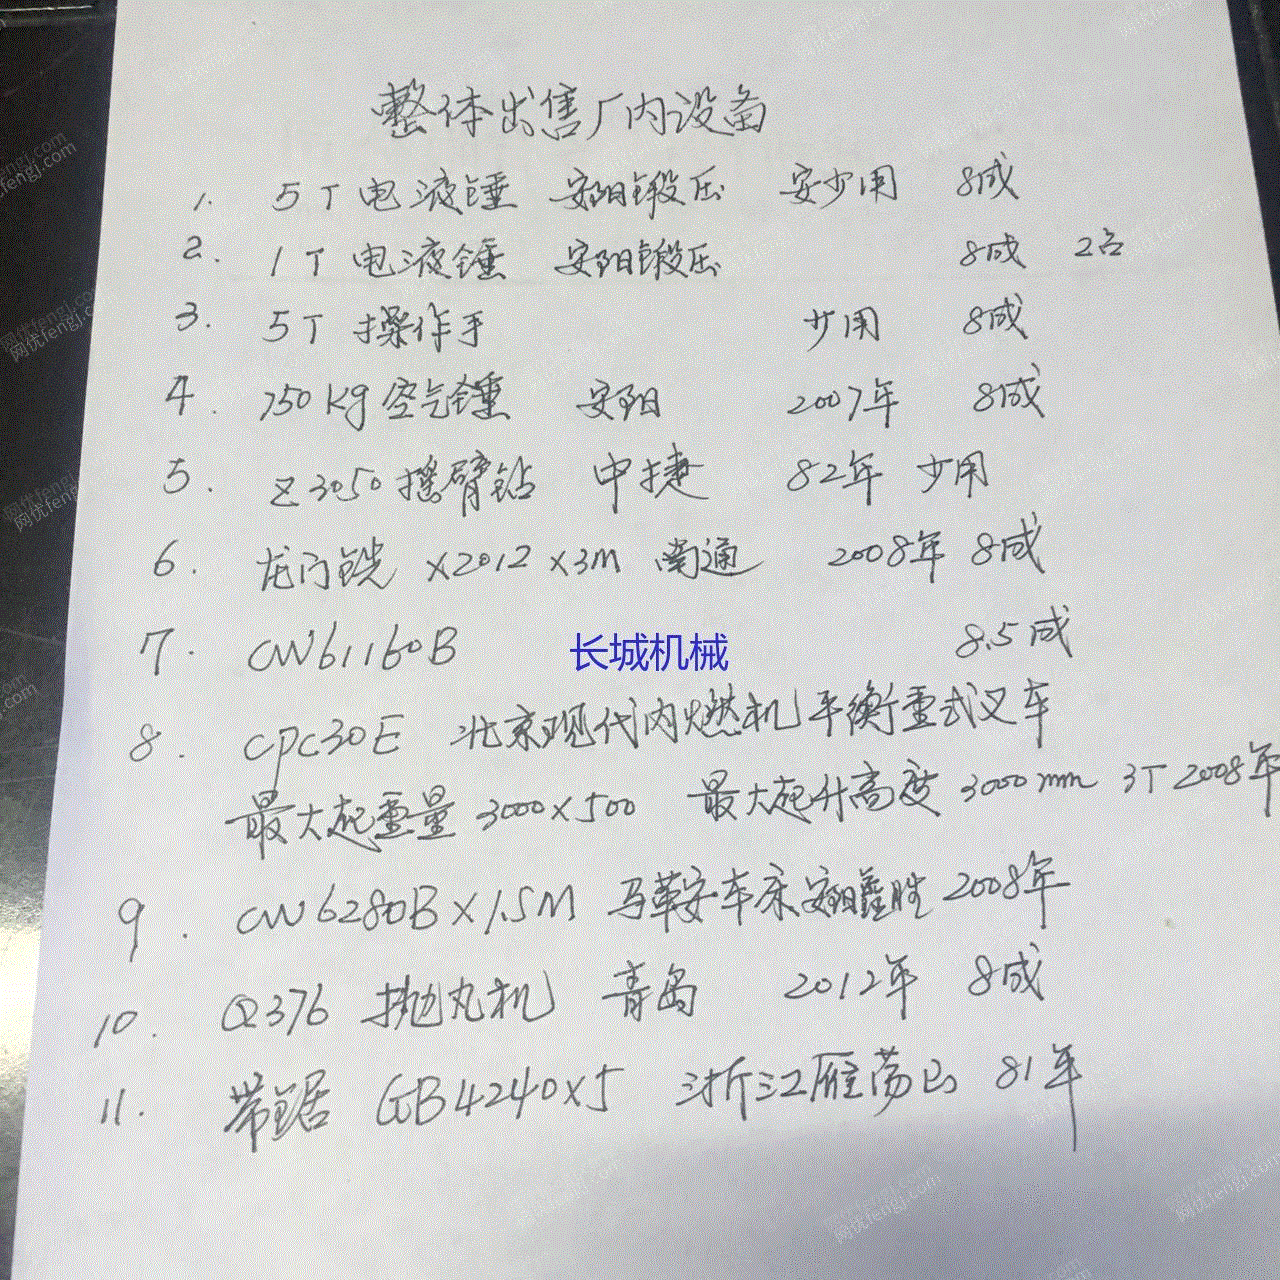 整体出售厂内设备
1. 5T 电液锤 安阳锻压 安少用 8成
2. 1T 电液锤 安阳锻压 8成 2台
3. 5T 操作手 少用 8成
4. 750kg 空气锤 安阳 2007年 8成
5. Z3050 摇臂钻 中捷 82年 少用
6. 龙门铣 ×2012×3M 南通 2008年 8成
7. CW61160B 长城机械 8.5成
8. CPC30E 北京现代内燃机平衡重式叉车
最大起重量 3000×500 最大起升高度 3000mm 3T 2008年
9. CW6280B×1.5M 马鞍安车床 安阳鑫胜 2008年
10. Q376 抛丸机 青岛 2012年 8成
11. 带锯 GB4240×5 浙江雁荡山 81年
网优fengj.com